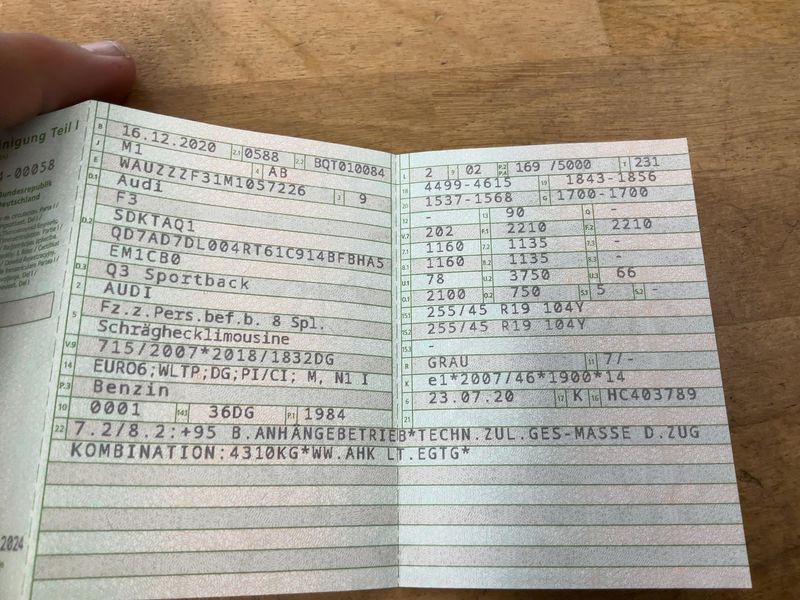 nigung Teil I
4-00058
Bundesrepublik
Deutschland
B 16.12.2020 2.1 0588 2.2 BQT010084
J M1 4 AB
E WAUZZZF31M1057226 3 9
D.1 Audi
F3
D.2 SDKTAQ1
QD7AD7DL004RT61C914BFBHA5
EM1CB0
D.3 Q3 Sportback
2 AUDI
5 Fz.z.Pers.bef.b. 8 Spl.
Schräghecklimousine
V.9 715/2007*2018/1832DG
14 EURO6;WLTP;DG;PI/CI; M, N1 I
P.3 Benzin
10 0001 14.1 36DG P.1 1984
L 2 9 02 P.2 P.4 169 /5000 T 231
18 4499-4615 19 1843-1856
20 1537-1568 G 1700-1700
12 - 13 90 Q -
V.7 202 F.1 2210 F.2 2210
7.1 1160 7.2 1135 7.3 -
8.1 1160 8.2 1135 8.3 -
U.1 78 U.2 3750 U.3 66
O.1 2100 O.2 750 S.1 5 S.2 -
15.1 255/45 R19 104Y
15.2 255/45 R19 104Y
15.3 -
R GRAU 11 7/-
K e1*2007/46*1900*14
6 23.07.20 17 K 16 HC403789
21
22 7.2/8.2:+95 B.ANHÄNGEBETRIEB*TECHN.ZUL.GES-MASSE D.ZUG
KOMBINATION:4310KG*WW.AHK LT.EGTG*
2024